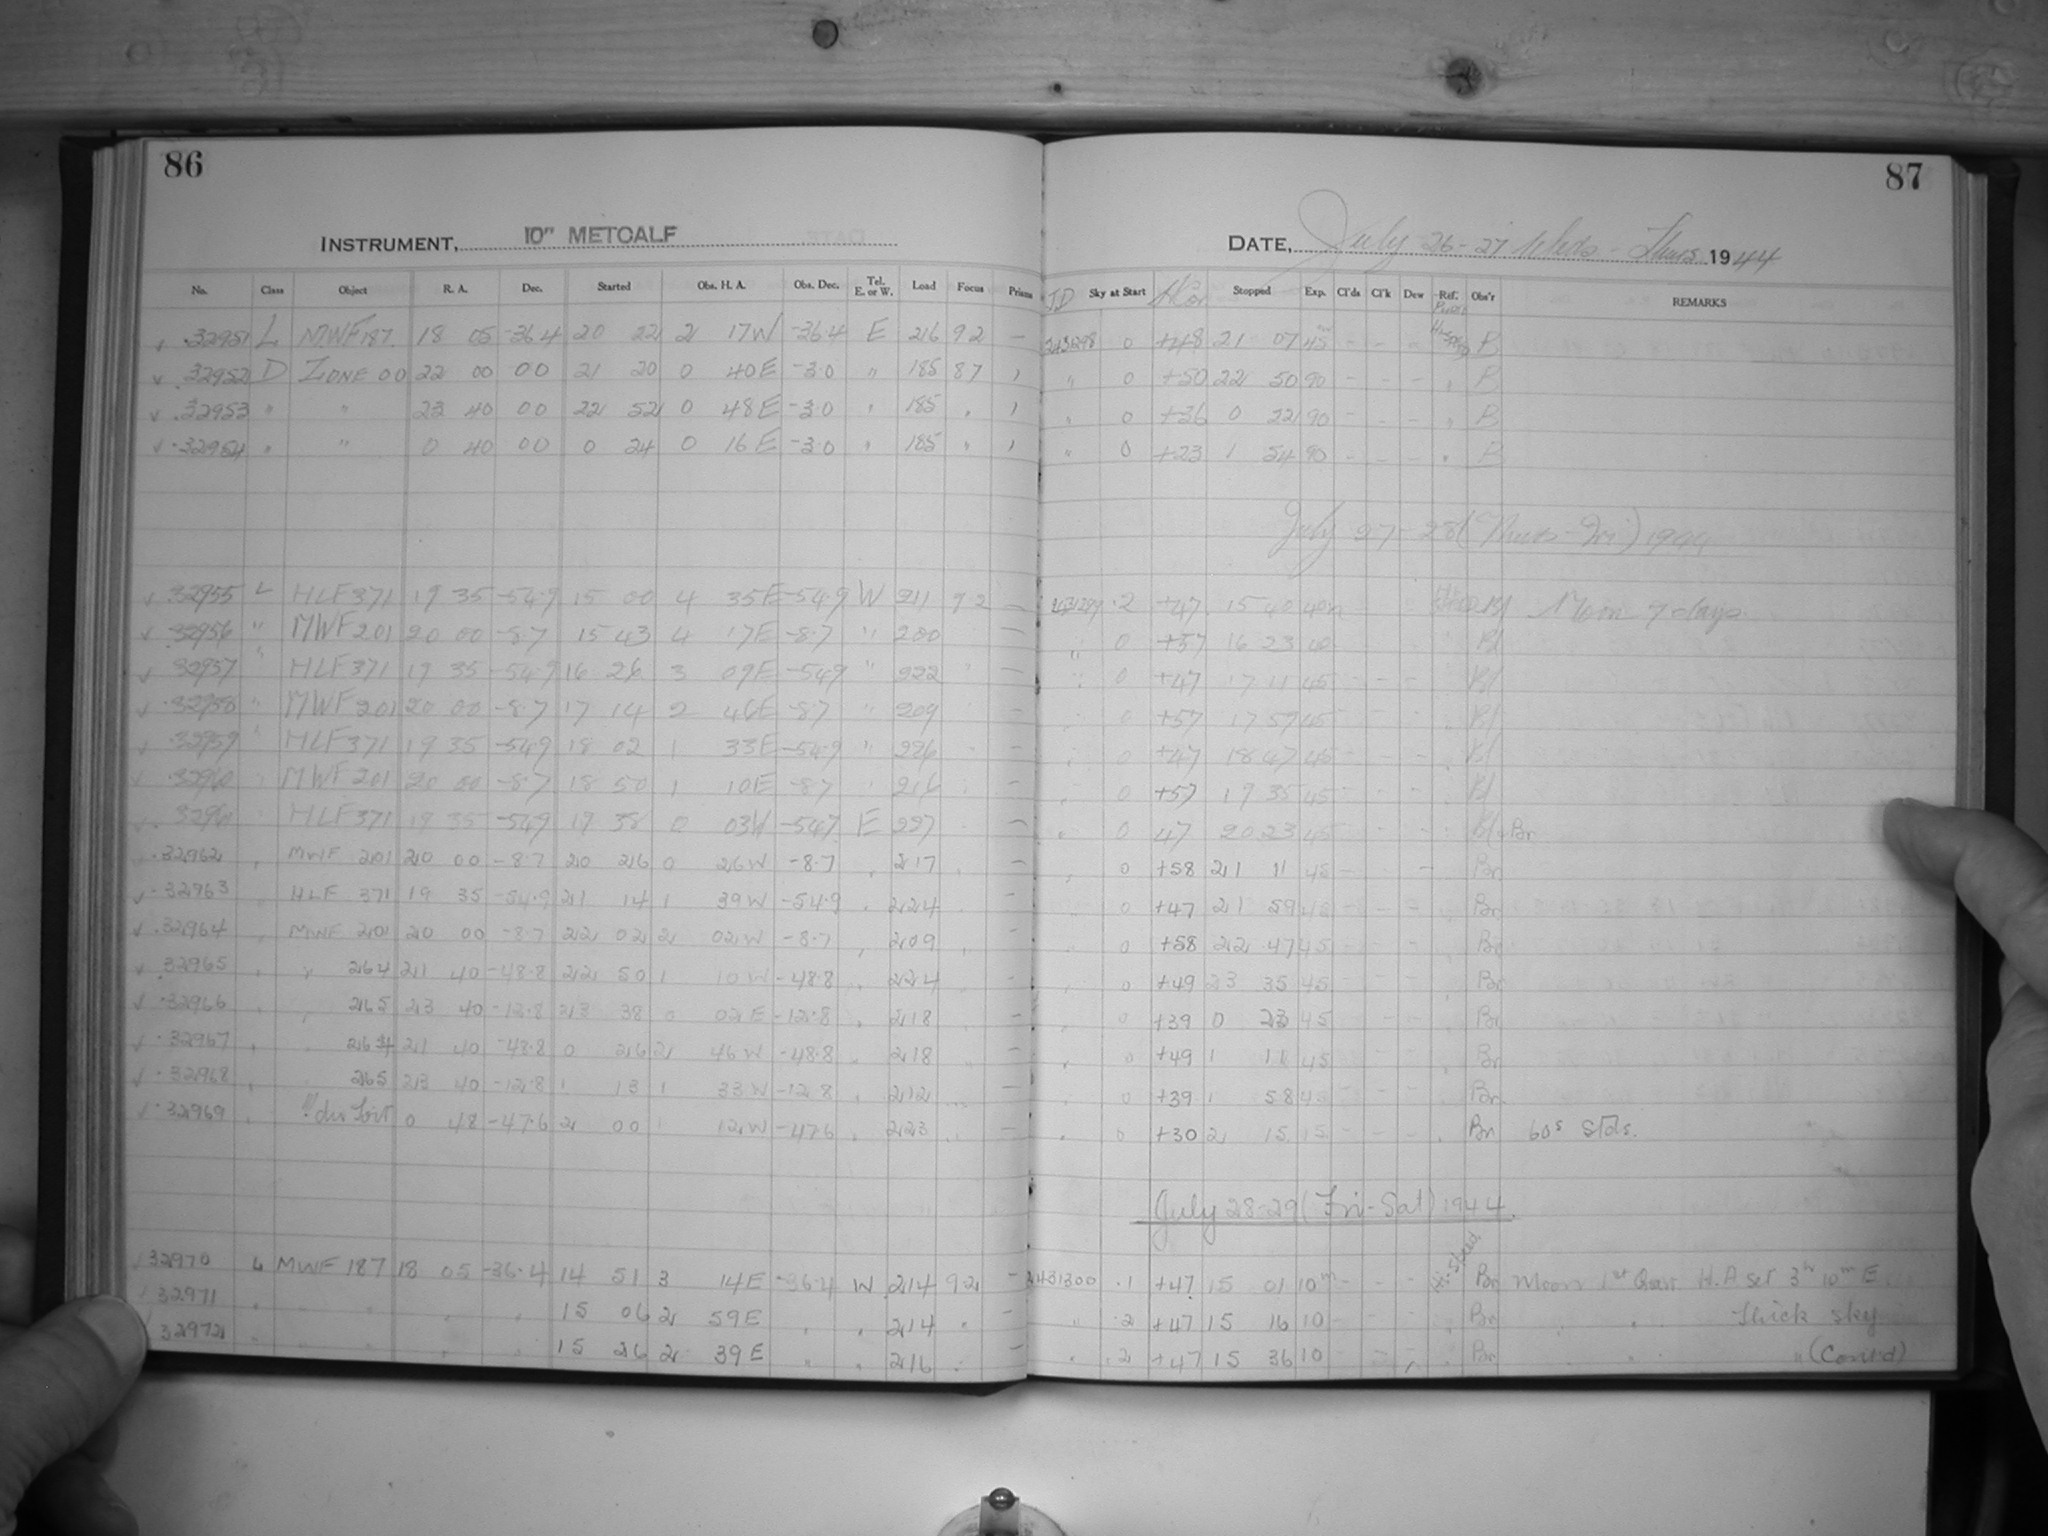 86
87
INSTRUMENT, 10" METCALF
DATE, July 26-27 Weds - Thurs 1944
No. Class Object R. A. Dec. Started Obs. H. A. Obs. Dec. Tel. E. or W. Load Focus Prism JD Sky at Start Stopped Exp. Cl'ds Cl'k Dew Ref. Obs'r REMARKS
32951 L MWF 187 18 05 -36.4 20 22 2 17W -36.4 E 216 92 — 0 +48 21 07 45 - - - B
32952 D ZONE 00 22 00 00 21 20 0 40E -3.0 " 185 87 " 0 +50 22 50 90 - - - B
32953 " " 23 40 00 22 52 0 48E -3.0 " 185 " " 0 +36 0 22 90 - - - " B
32954 " " 0 40 00 0 24 0 16E -3.0 " 185 " " 0 +23 1 54 90 - - - " B
July 27-28 (Thurs-Fri) 1944
32955 L HLF 371 19 35 -54.9 15 00 4 35E -54.9 W 211 92 — .2 +47 15 40 40m Bl Moon 7 days
32956 " MWF 201 20 00 -8.7 15 43 4 17E -8.7 " 200 — " 0 +57 16 23 40 Bl
32957 " HLF 371 19 35 -54.9 16 26 3 09E -54.9 " 222 — " 0 +47 17 11 45 - - - Bl
32958 " MWF 201 20 00 -8.7 17 14 2 46E -8.7 " 209 — 0 +57 17 59 45 - - - Bl
32959 " HLF 371 19 35 -54.9 18 02 1 33E -54.9 " 226 — 0 +47 18 47 45 - - - Bl
32960 " MWF 201 20 00 -8.7 18 50 1 10E -8.7 " 216 — 0 +57 19 35 45 - - - Bl
32961 HLF 371 19 35 -54.9 19 38 0 03W -54.9 E 227 — 0 47 20 23 45 - - - Bl-Bn
32962 " MWF 201 20 00 -8.7 20 26 0 26W -8.7 " 217 — 0 +58 21 11 45 - - Bn
32963 " HLF 371 19 35 -54.9 21 14 1 39W -54.9 " 224 — 0 +47 21 59 45 - - - Bn
32964 " MWF 201 20 00 -8.7 22 02 2 02W -8.7 " 209 — 0 +58 22 47 45 - - - Bn
32965 " " 264 21 40 -48.8 22 50 1 10W -48.8 " 224 — 0 +49 23 35 45 - - - Bn
32966 " 265 23 40 -12.8 23 38 0 02E -12.8 " 218 — 0 +39 0 23 45 - - - Bn
32967 " " 264 21 40 -48.8 0 26 2 46W -48.8 " 218 — 0 +49 1 11 45 - - - Bn
32968 " 265 23 40 -12.8 1 13 1 33W -12.8 " 212 — 0 +39 1 58 45 - - - Bn
32969 " du Toit 0 48 -47.6 2 00 1 12W -47.6 " 223 — 0 +30 2 15 15 - - - Bn 60s Stds.
July 28-29 (Fri-Sat) 1944
32970 L MWF 187 18 05 -36.4 14 51 3 14E -36.4 W 214 92 — 2431300 .1 +47 15 01 10m - - - Bn Moon 1st Quar. H.A set 3h 10m E.
32971 " " " " 15 06 2 59E " " 214 " — " .2 +47 15 16 10 - - - Bn " " thick sky
32972 " " " " 15 26 2 39E " " 216 " — " .2 +47 15 36 10 - - - Bn " " (Cont'd)